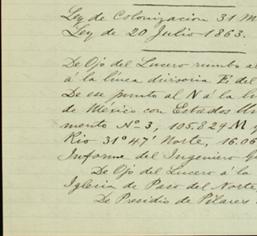 Ley de Colonizacion 31 M
Ley de 20 Julio 1863.
De Ojo del Lucero rumbo al
á la linea divisoria E. del
De ese punto al N á la li
de México con Estados Un
mento Nº 3, 105.829 M y
Rio 31°47' Norte, 16.06
Informe del Ingeniero G
De Ojo del Lucero á la
Iglesia de Paso del Norte
De Presidio de Pilares